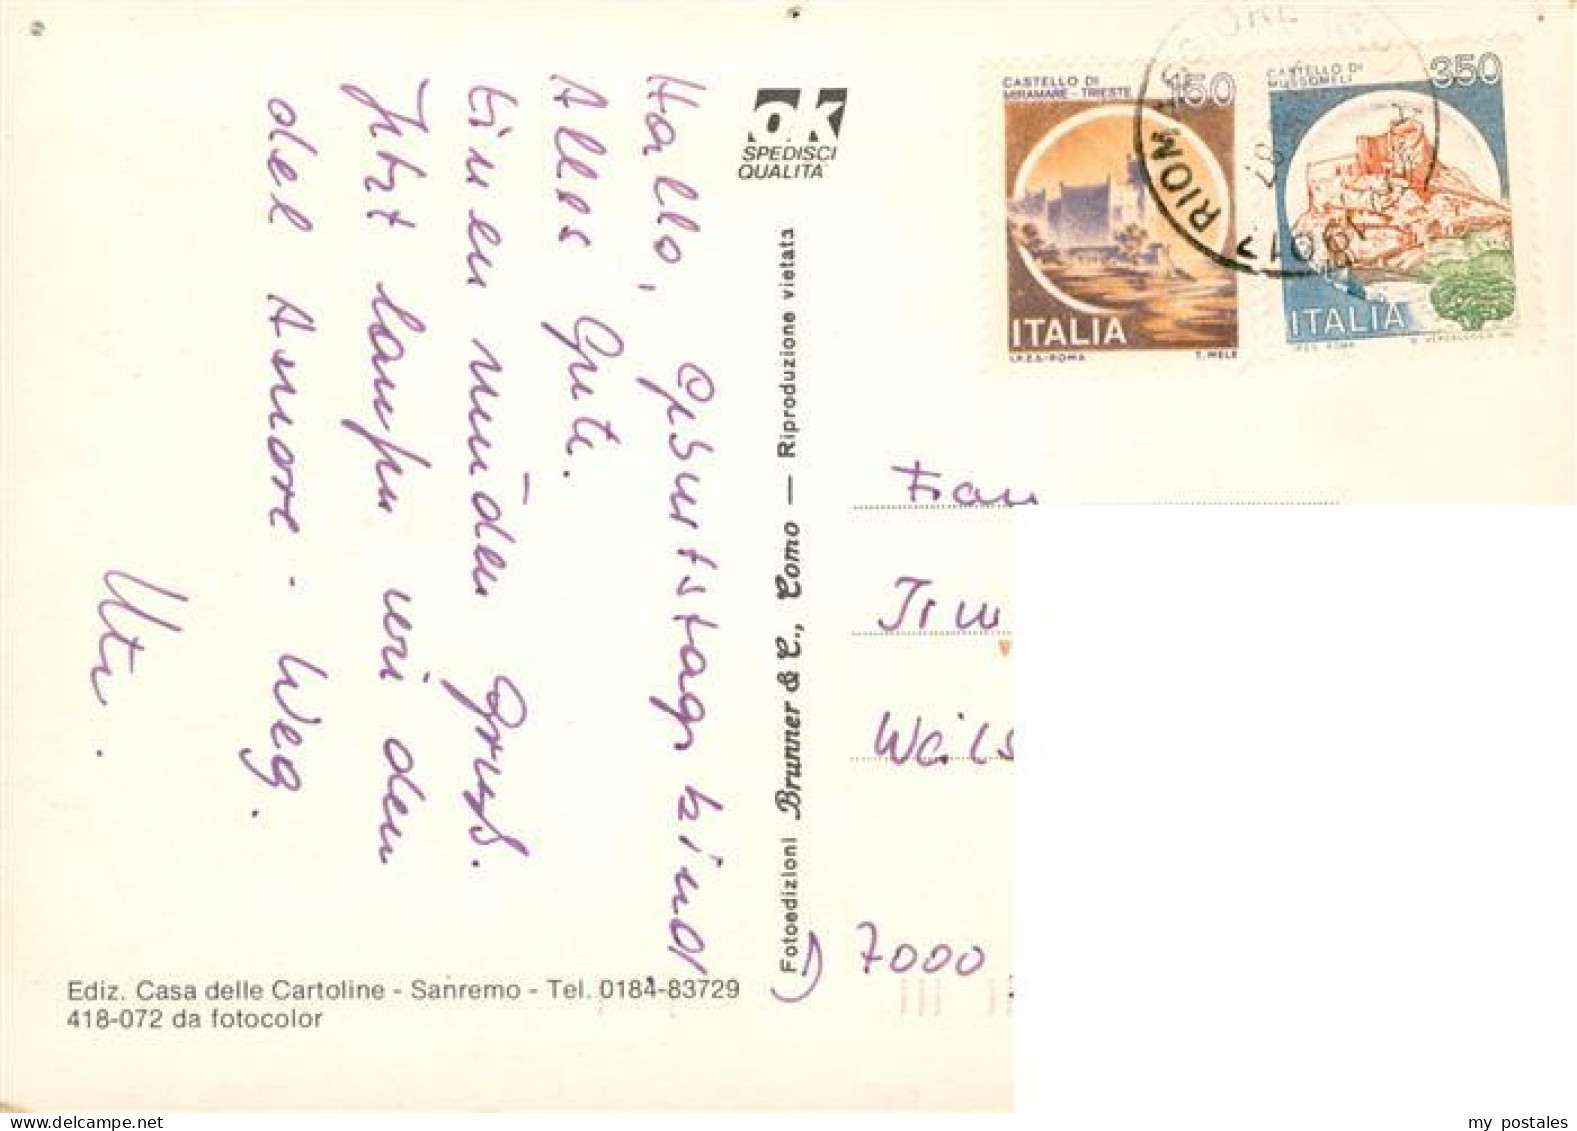 Hallo, Geburtstagskind,
Alles Gute.
Einen müden Gruß.
Jetzt laufen wir den
del Amore - Weg.
Ute.
OK
SPEDISCI
QUALITA'
Fotoedizioni Brunner & C., Como — Riproduzione vietata
Ediz. Casa delle Cartoline - Sanremo - Tel. 0184-83729
418-072 da fotocolor
CASTELLO DI
MIRAMARE - TRIESTE 150
ITALIA
I.P.Z.S. - ROMA T. MELE
CASTELLO DI
MUSSOMELI 350
ITALIA
I.P.Z.S. ROMA
RIOMAGGIORE
19017
87
Frau
Irm
Weils
D 7000
my postales